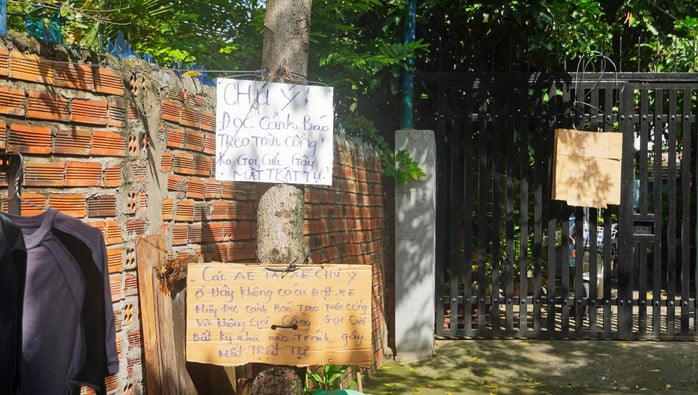 CHÚ Ý!
ĐỌC CảNH Báo
TREO TRÊN Cổng!
Ko Gọi Cửa Gây
MẤT TRẬT TỰ!
Các AE TÀI XẾ CHÚ Ý
Ở Đây Không có ai Đặt XE
Hãy Đọc CảNH Báo TREO TRÊN CổNG
Và Không Gọi Cổng Gọi Cửa
Bất Kỳ Nhà Nào TRÁNH gây
MẤT TRẬT TỰ